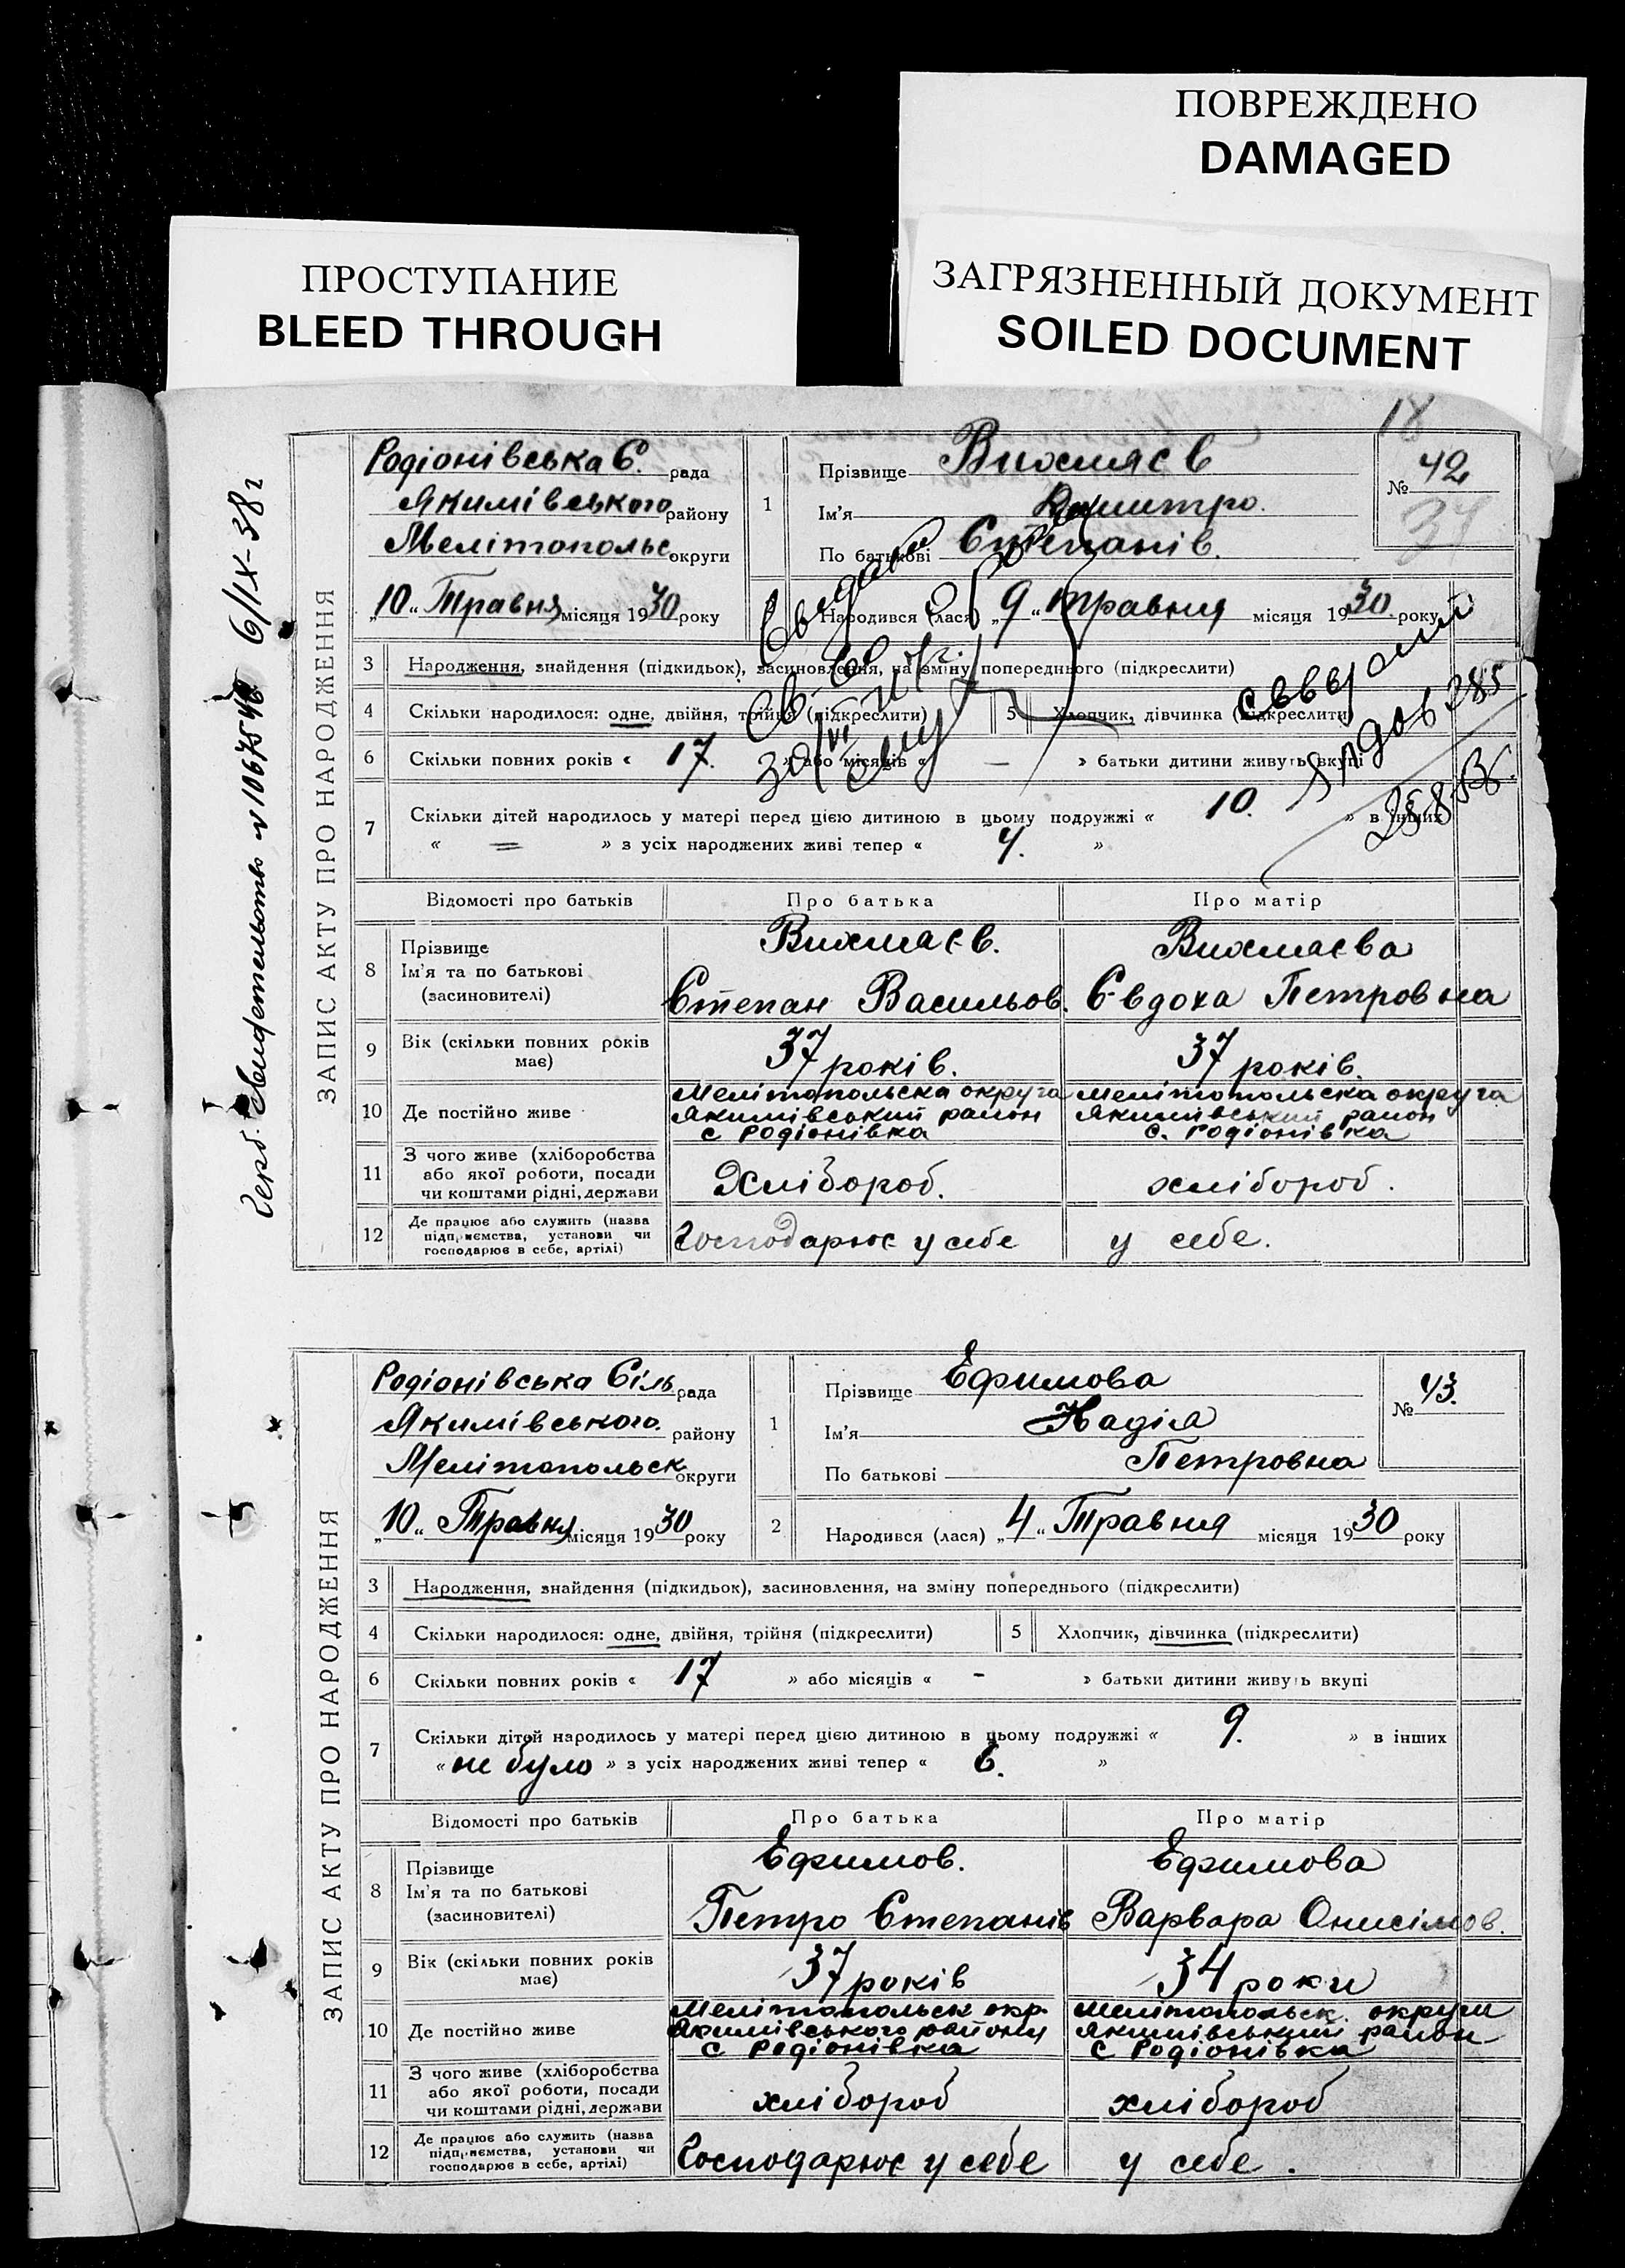 ПОВРЕЖДЕНО
DAMAGED
ПРОСТУПАНИЕ
BLEED THROUGH
ЗАГРЯЗНЕННЫЙ ДОКУМЕНТ
SOILED DOCUMENT
18
Герб. Свидетельство № 6/IX-38 г
ЗАПИС АКТУ ПРО НАРОДЖЕННЯ
Родіонівська С. рада
Якимівського району
Мелітопольс округи
„10“ Травня місяця 1930 року
1
Прізвище Вихмяєв
Ім'я Дмитро.
По батькові Степанів.
№ 42
37
Народився (лася) „9“ травня місяця 1930 року
3 Народження, знайдення (підкидьок), засиновлення, на зміну попереднього (підкреслити)
4 Скільки народилося: одне, двійня, трійня (підкреслити) 5 Хлопчик, дівчинка (підкреслити)
6 Скільки повних років « 17. » або місяців « — » батьки дитини живуть вкупі
7 Скільки дітей народилось у матері перед цією дитиною в цьому подружжі « 10. » в інших
« = » з усіх народжених живі тепер « 4. »
Відомості про батьків Про батька Про матір
8 Прізвище
Ім'я та по батькові
(засиновителі)
Вихмаєв.
Степан Васильов.
Вихмаєва
Євдоха Петровна
9 Вік (скільки повних років має) 37 років. 37 років.
10 Де постійно живе
Мелітопольска округа
Якимівський район
с Родіонівка
Мелітопольска округа
Якимівський район
с. Родіонівка
11 З чого живе (хліборобства
або якої роботи, посади
чи коштами рідні, держави
Хлібороб. хлібороб.
12 Де працює або служить (назва
підприємства, установи чи
господарює в себе, артілі)
Господарює у себе у себе.
ЗАПИС АКТУ ПРО НАРОДЖЕННЯ
Родіонівська Сіль рада
Якимівського. району
Мелітопольск округи
„10“ Травня місяця 1930 року
1
Прізвище Ефимова
Ім'я Надія
По батькові Петровна
№ 43.
2 Народився (лася) „4“ Травня місяця 1930 року
3 Народження, знайдення (підкидьок), засиновлення, на зміну попереднього (підкреслити)
4 Скільки народилося: одне, двійня, трійня (підкреслити) 5 Хлопчик, дівчинка (підкреслити)
6 Скільки повних років « 17 » або місяців « - » батьки дитини живуть вкупі
7 Скільки дітей народилось у матері перед цією дитиною в цьому подружжі « 9. » в інших
« не було » з усіх народжених живі тепер « 6. »
Відомості про батьків Про батька Про матір
8 Прізвище
Ім'я та по батькові
(засиновителі)
Ефимов.
Петро Степанів
Ефимова
Варвара Онисімов.
9 Вік (скільки повних років має) 37 років 34 роки
10 Де постійно живе
Мелітопольск окр.
Якимівського району
с Родіонівка
Мелітопольск. округи
Якимівський район
с Родіонівка
11 З чого живе (хліборобства
або якої роботи, посади
чи коштами рідні, держави
хлібороб хлібороб
12 Де працює або служить (назва
підприємства, установи чи
господарює в себе, артілі)
Господарює у себе у себе.